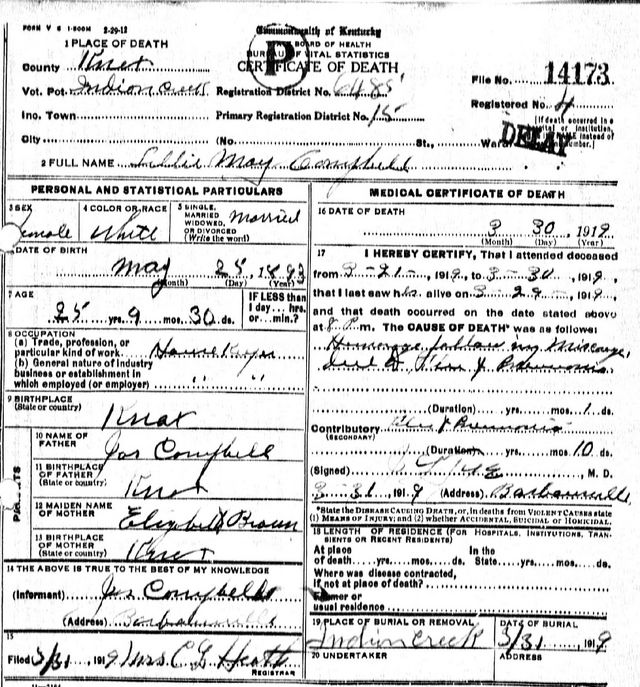 FORM V S 1-500M 2-29-12
Commonwealth of Kentucky
STATE BOARD OF HEALTH
BUREAU OF VITAL STATISTICS
CERTIFICATE OF DEATH
P
1 PLACE OF DEATH
County Knox
Vot. Pct. Indian Creek Registration District No. 6485
File No. 14173
Inc. Town Primary Registration District No. 15
Registered No. 4
City (No. St., Ward)
DELAY
2 FULL NAME Lillie May Campbell
PERSONAL AND STATISTICAL PARTICULARS
3 SEX Female
4 COLOR OR RACE White
5 SINGLE, MARRIED WIDOWED, OR DIVORCED (Write the word) Married
DATE OF BIRTH
May 25, 1893
(Month) (Day) (Year)
7 AGE
25 yrs. 9 mos. 30 ds.
IF LESS than 1 day...hrs. or...min.?
8 OCCUPATION
(a) Trade, profession, or particular kind of work
(b) General nature of industry business or establishment in which employed (or employer) " "
9 BIRTHPLACE (State or country) Knox
PARENTS
10 NAME OF FATHER Jas Campbell
11 BIRTHPLACE OF FATHER (State or country) Knox
12 MAIDEN NAME OF MOTHER Elizabeth Brown
13 BIRTHPLACE OF MOTHER (State or country) Knox
14 THE ABOVE IS TRUE TO THE BEST OF MY KNOWLEDGE
(Informant) Jas Campbell
(Address) Barbourville
15
Filed 3/31, 1919 Mrs C G
REGISTRAR
MEDICAL CERTIFICATE OF DEATH
16 DATE OF DEATH
3 30, 1919
(Month) (Day) (Year)
17 I HEREBY CERTIFY, That I attended deceased
from 3-21-, 1919, to 3-30, 1919,
that I last saw her alive on 3-29-, 1919,
and that death occurred on the date stated above
at 8 P. m. The CAUSE OF DEATH* was as follows:
Hemorage following Miscarage,
due to Flu & Pneumonia
(Duration) yrs. mos. 1 ds.
Contributory Flu & Pneumonia
(SECONDARY)
(Duration) yrs. mos. 10 ds.
(Signed) M. D.
3-31, 1919 (Address) Barbourville
*State the DISEASE CAUSING DEATH, or, in deaths from VIOLENT CAUSES state
(1) MEANS OF INJURY; and (2) whether ACCIDENTAL, SUICIDAL or HOMICIDAL.
18 LENGTH OF RESIDENCE (FOR HOSPITALS, INSTITUTIONS, TRANSIENTS OR RECENT RESIDENTS)
At place of death...yrs...mos...ds. In the State...yrs...mos...ds.
Where was disease contracted,
if not at place of death?
Former or usual residence
19 PLACE OF BURIAL OR REMOVAL Indian Creek
DATE OF BURIAL 3/31 1919
20 UNDERTAKER
ADDRESS